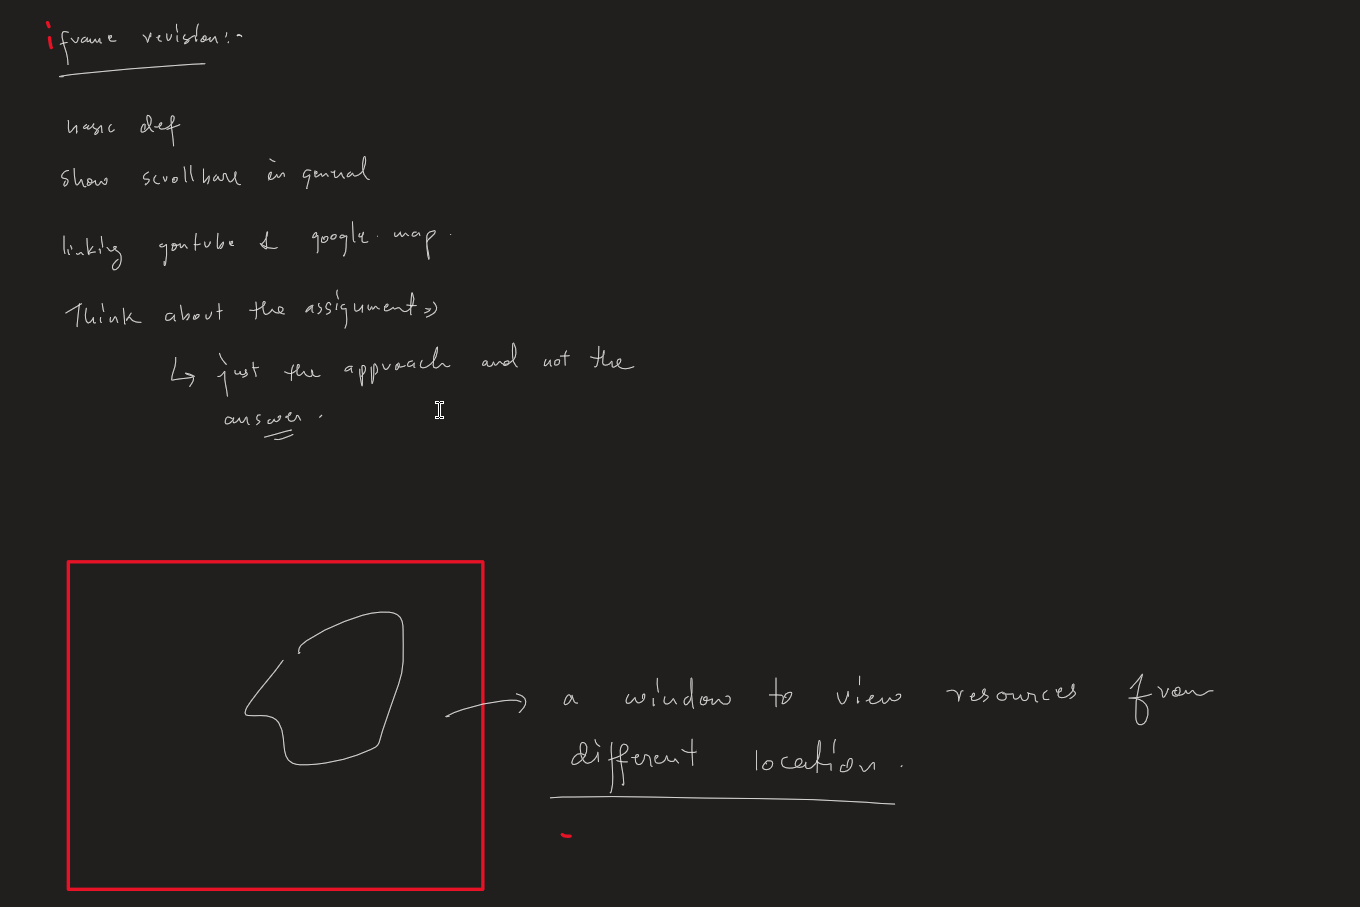 iframe revision:-
basic def
Show scrollbar in general
linking youtube & google map.
Think about the assignment
↳ just the approach and not the
answer.
→ a window to view resources from
different location.